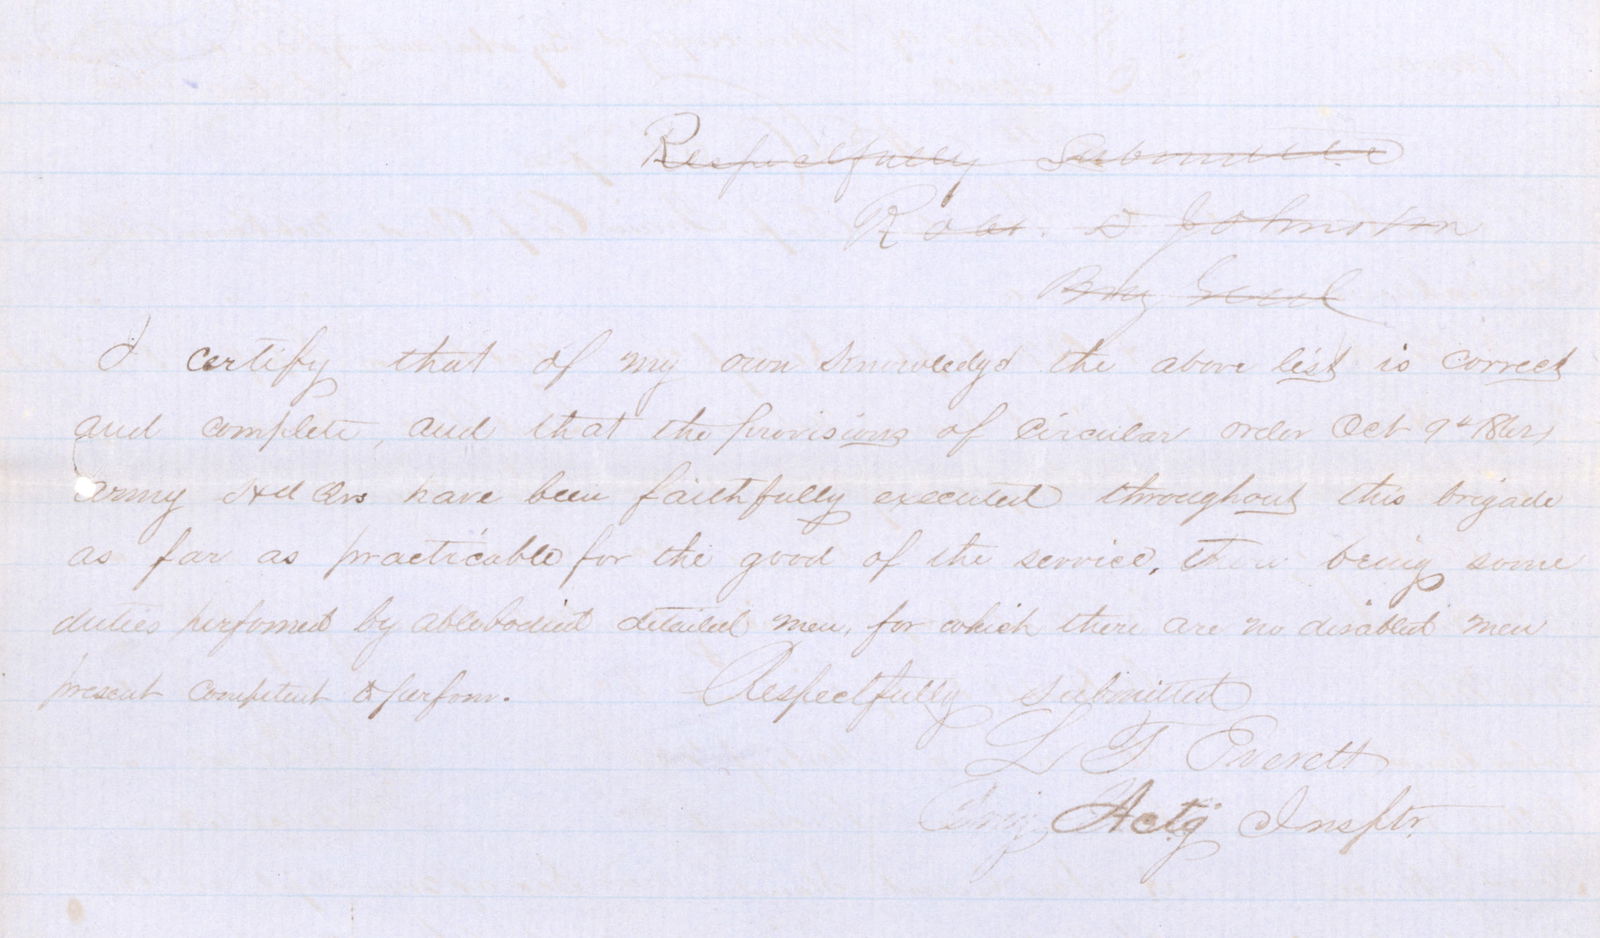 Respectfully Submitted
Robt. D Johnston
Brig Genl
I certify that of my own knowledge the above list is correct
and complete, and that the provisions of circular order Oct 9th 1864
Army Hd Qrs have been faithfully executed throughout this brigade
as far as practicable for the good of the service, there being some
duties performed by ablebodied detailed men, for which there are no disabled men
present competent to perform.
Respectfully submitted
L T Everett
Brig Actg Insptr.